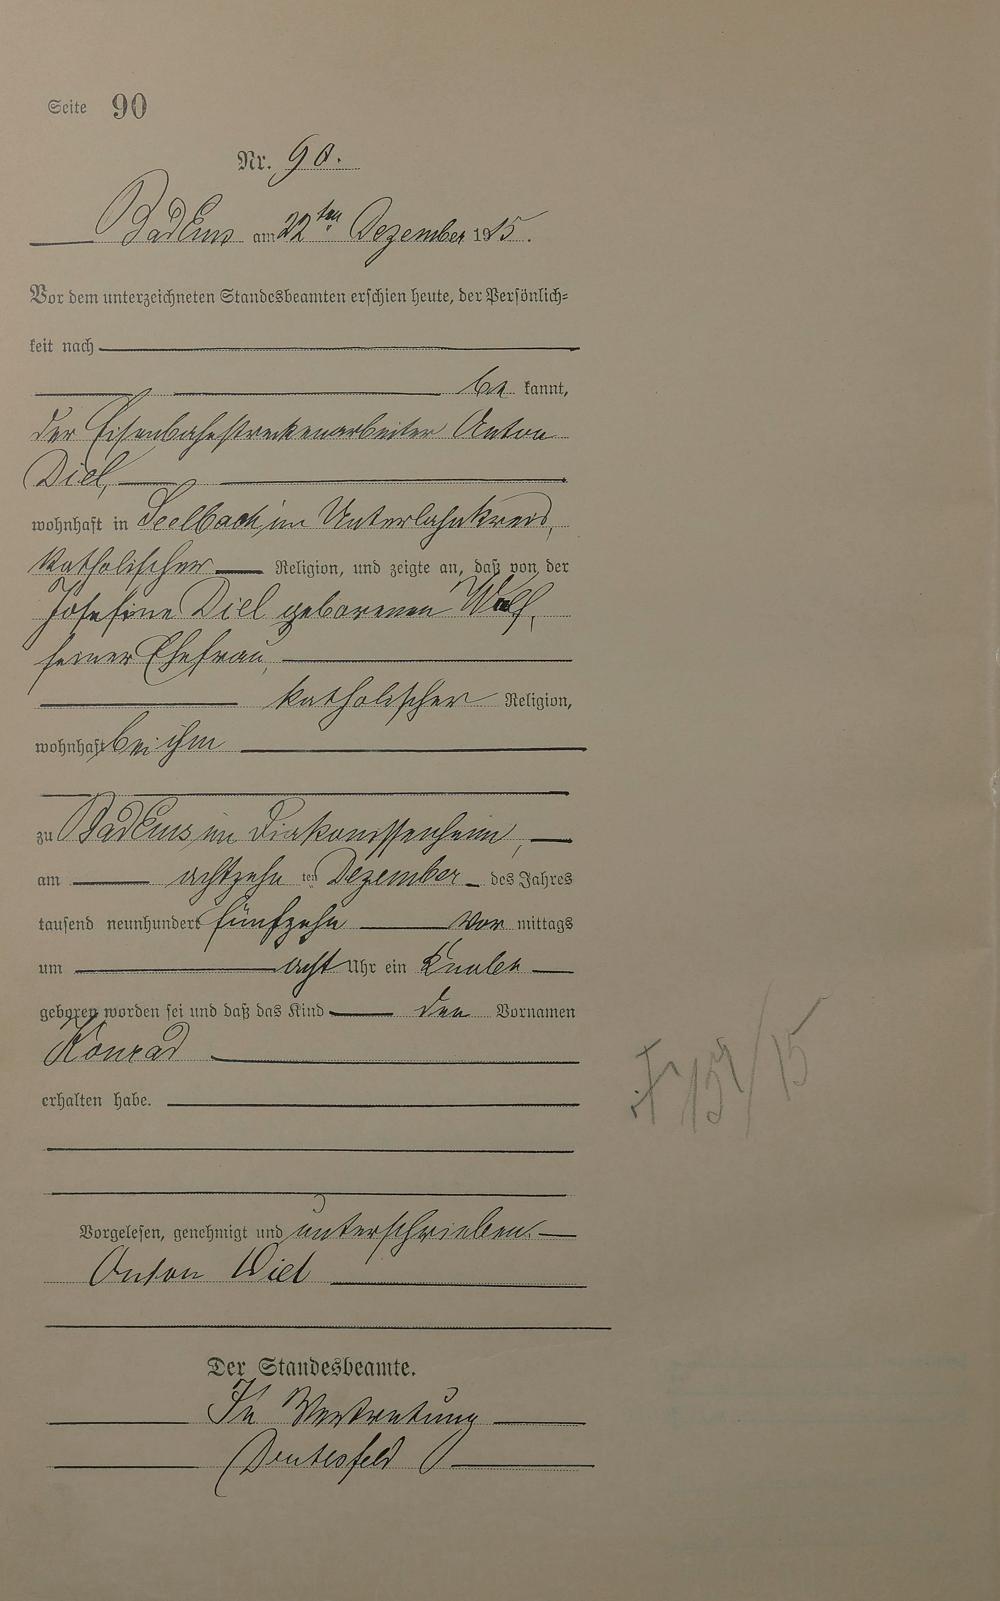 Seite 90
Nr. 90.
Bad Ems am 22ten Dezember 1915.
Vor dem unterzeichneten Standesbeamten erschien heute, der Persönlich=
keit nach
be kannt,
der Eisenbahnstreckenarbeiter Anton
Diel,
wohnhaft in Seelbach im Unterlahnkreis,
katholischer Religion, und zeigte an, daß von der
Josefine Diel geborenen
seiner Ehefrau,
katholischer Religion,
wohnhaft bei ihm
zu Bad Ems im Diakonissenheim,
am achtzehn ten Dezember des Jahres
tausend neunhundert fünfzehn Vor mittags
um acht Uhr ein Knabe
geboren worden sei und daß das Kind den Vornamen
Konrad
erhalten habe.
Vorgelesen, genehmigt und unterschrieben.
Anton Diel
Der Standesbeamte.
In Vertretung